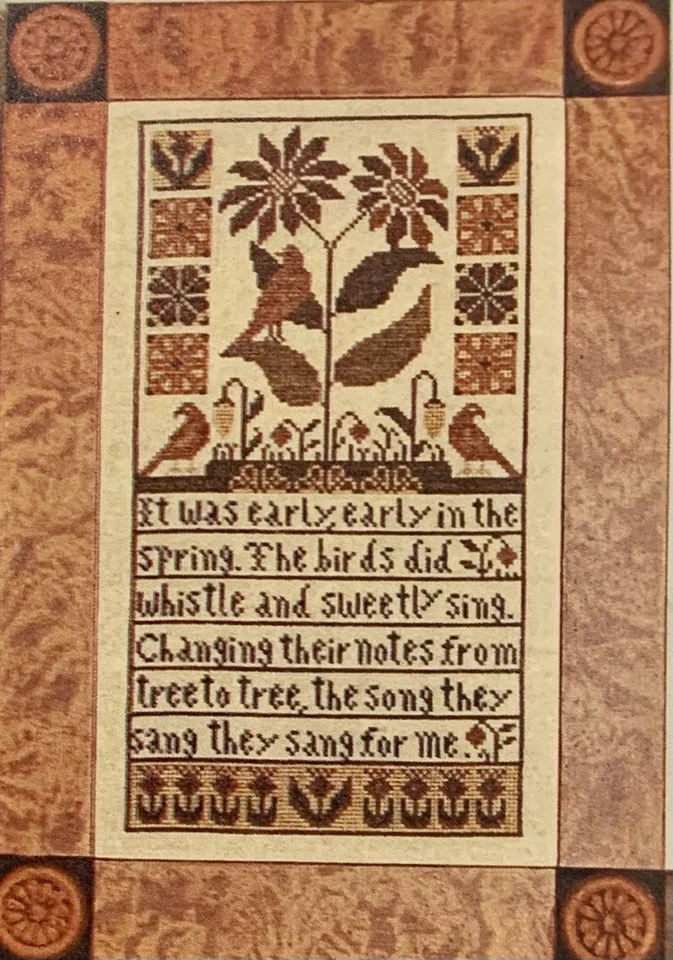 It was early, early in the
spring. The birds did
whistle and sweetly sing.
Changing their notes from
tree to tree, the song they
sang they sang for me.